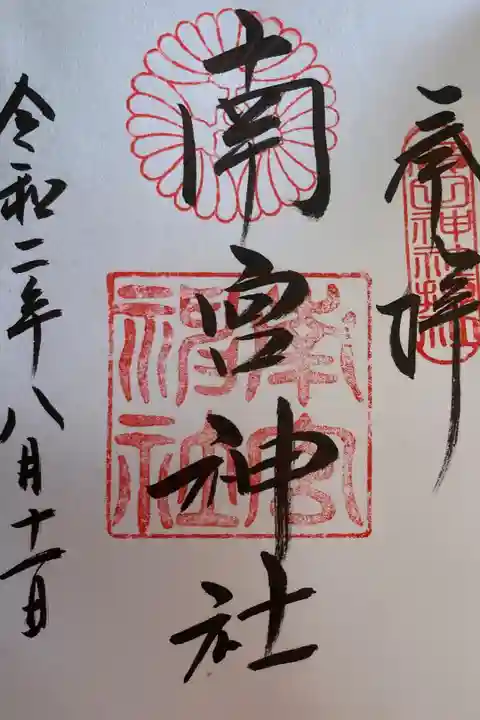 奉拝
南宮神社
南宮
神社
令和二年八月十一日